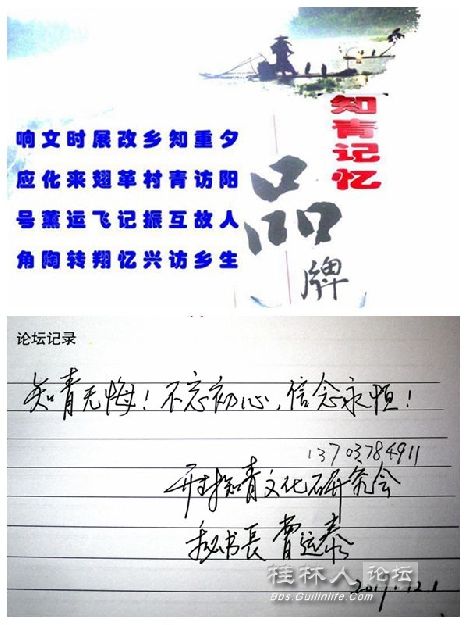 知青记忆
品牌
夕阳人生
重访故乡
知青互访
乡村振兴
改革记忆
展翅飞翔
时来运转
文化薰陶
响应号角
论坛记录
知青无悔！不忘初心，信念永恒！
13703784911
开封知青文化研究会
秘书长 曹运泰
2019.12.1
桂林人论坛
Bbs.Guilinlife.com